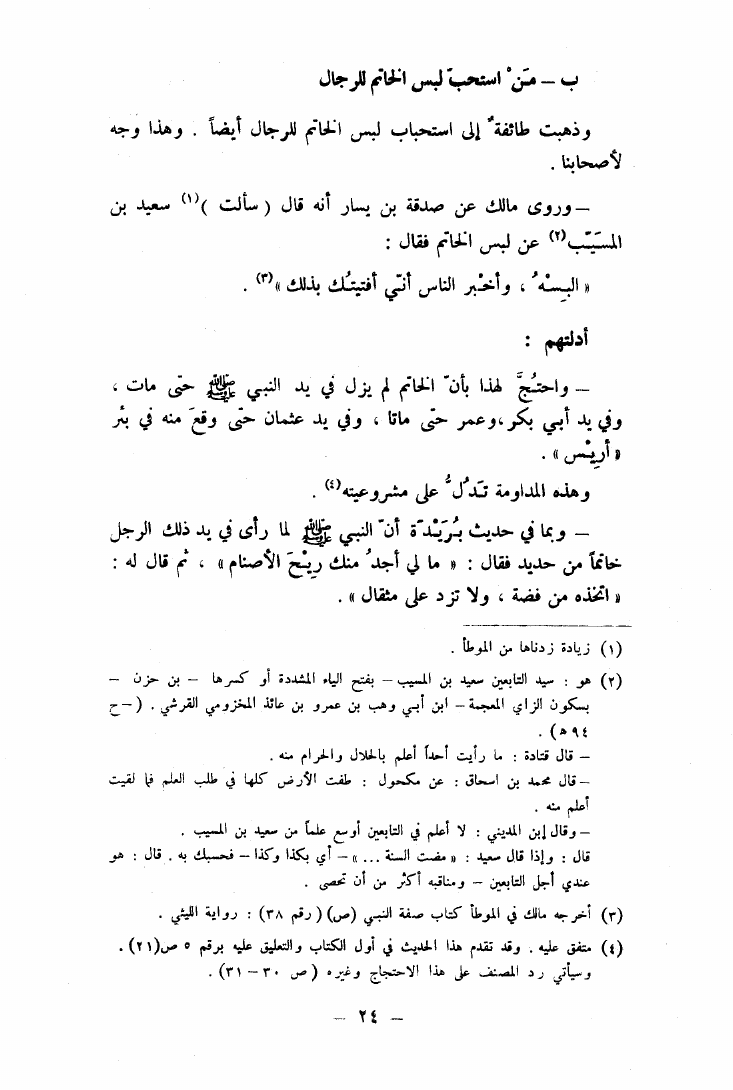 ب – مَنْ استحبّ لبس الخاتم للرجال
وذهبت طائفةٌ إلى استحباب لبس الخاتم للرجال أيضاً . وهذا وجه
لأصحابنا .
– وروى مالك عن صدقة بن يسار أنه قال ( سألت )(١) سعيد بن
المسَيَّب(٢) عن لبس الخاتم فقال :
« البِسْهُ ، وأخْبر الناس أنّي أفتيتُك بذلك »(٣) .
أدلتهم :
– واحتُجَّ لهذا بأنّ الخاتم لم يزل في يد النبي ﷺ حتى مات ،
وفي يد أبي بكر ، وعمر حتى ماتا ، وفي يد عثمان حتى وقعَ منه في بئر
« أرِيْس » .
وهذه المداومة تَدُلُّ على مشروعيته(٤) .
– وبما في حديث بُرَيْدَة أنّ النبي ﷺ لما رأى في يد ذلك الرجل
خاتماً من حديد فقال : « ما لي أجدُ منك رِيْحَ الأصنام » ، ثم قال له :
« اتخذه من فضة ، ولا تزد على مثقال » .
(١) زيادة زدناها من الموطأ .
(٢) هو : سيد التابعين سعيد بن المسيب – بفتح الياء المشددة أو كسرها – بن حزن –
بسكون الزاي المعجمة – ابن أبي وهب بن عمرو بن عائذ المخزومي القرشي . ( – ح
٩٤ ه ) .
– قال قتادة : ما رأيت أحداً أعلم بالحلال والحرام منه .
– قال محمد بن اسحاق : عن مكحول : طفت الأرض كلها في طلب العلم فما لقيت
أعلم منه .
– وقال إبن المديني : لا أعلم في التابعين أوسع علماً من سعيد بن المسيب .
قال : وإذا قال سعيد : « مضت السنة ... » – أي بكذا وكذا – فحسبك به . قال : هو
عندي أجل التابعين – ومناقبه أكثر من أن تحصى .
(٣) أخرجه مالك في الموطأ كتاب صفة النبي (ص) ( رقم ٣٨ ) : رواية الليثي .
(٤) متفق عليه . وقد تقدم هذا الحديث في أول الكتاب والتعليق عليه برقم ٥ ص(٢١) .
وسيأتي رد المصنف على هذا الاحتجاج وغيره ( ص ٣٠ – ٣١ ) .
– ٢٤ –